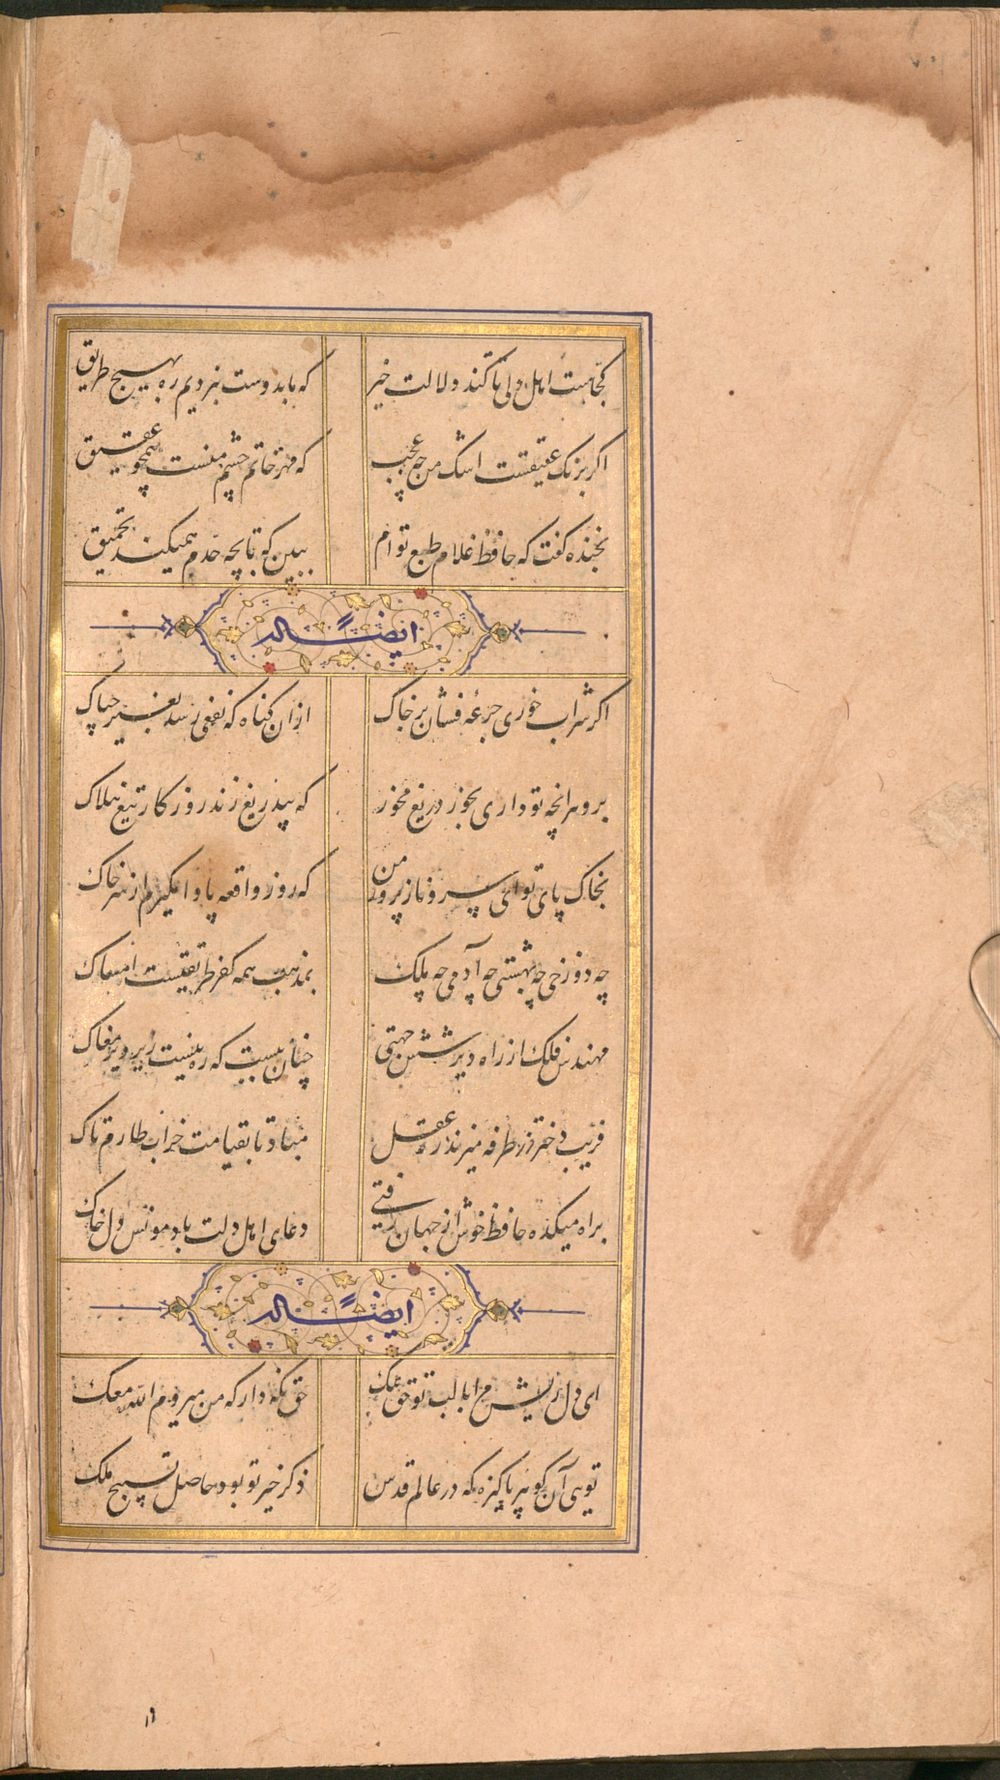 کجاست اهل دلی تا کند دلالت خیر
که ما بدوست نبردیم ره بهیچ طریق
اگر برنک عقیقست اشک من چه عجب
که مهر خاتم چشم منست همچو عقیق
بخنده کفت که حافظ غلام طبع توام
ببین که تا بچه حدم همیکند تحمیق
ایضاً له
اکر شراب خوری جرعه فشان بر خاک
از ان کناه که نفعی رسد بغیر چه باک
برو هرانچه تو داری بخور دریغ مخور
که بیدریغ زند روزکار تیغ هلاک
بخاک پای تو ای سرو ناز پرور من
که روز واقعه پا وامکیرم از سر خاک
چه دوزخی چه بهشتی چه آدمی چه ملک
بمذهب همه کفر طریقتست امساک
مهندس فلک از راه دیر شش جهتی
چنان ببست که ره نیست زیر دیر مغاک
فریب دختر رز طرفه میزند ره عقل
مباد تا بقیامت خراب طارم تاک
براه میکده حافظ خوش از جهان رفتی
دعای اهل دلت باد مونس دل خاک
ایضاً له
ای دل ریش مرا با لب تو حق نمک
حق نکه دار که من میروم الله معک
تویی آن کوهر پاکیزه که در عالم قدس
ذکر خیر تو بود حاصل تسبیح ملک